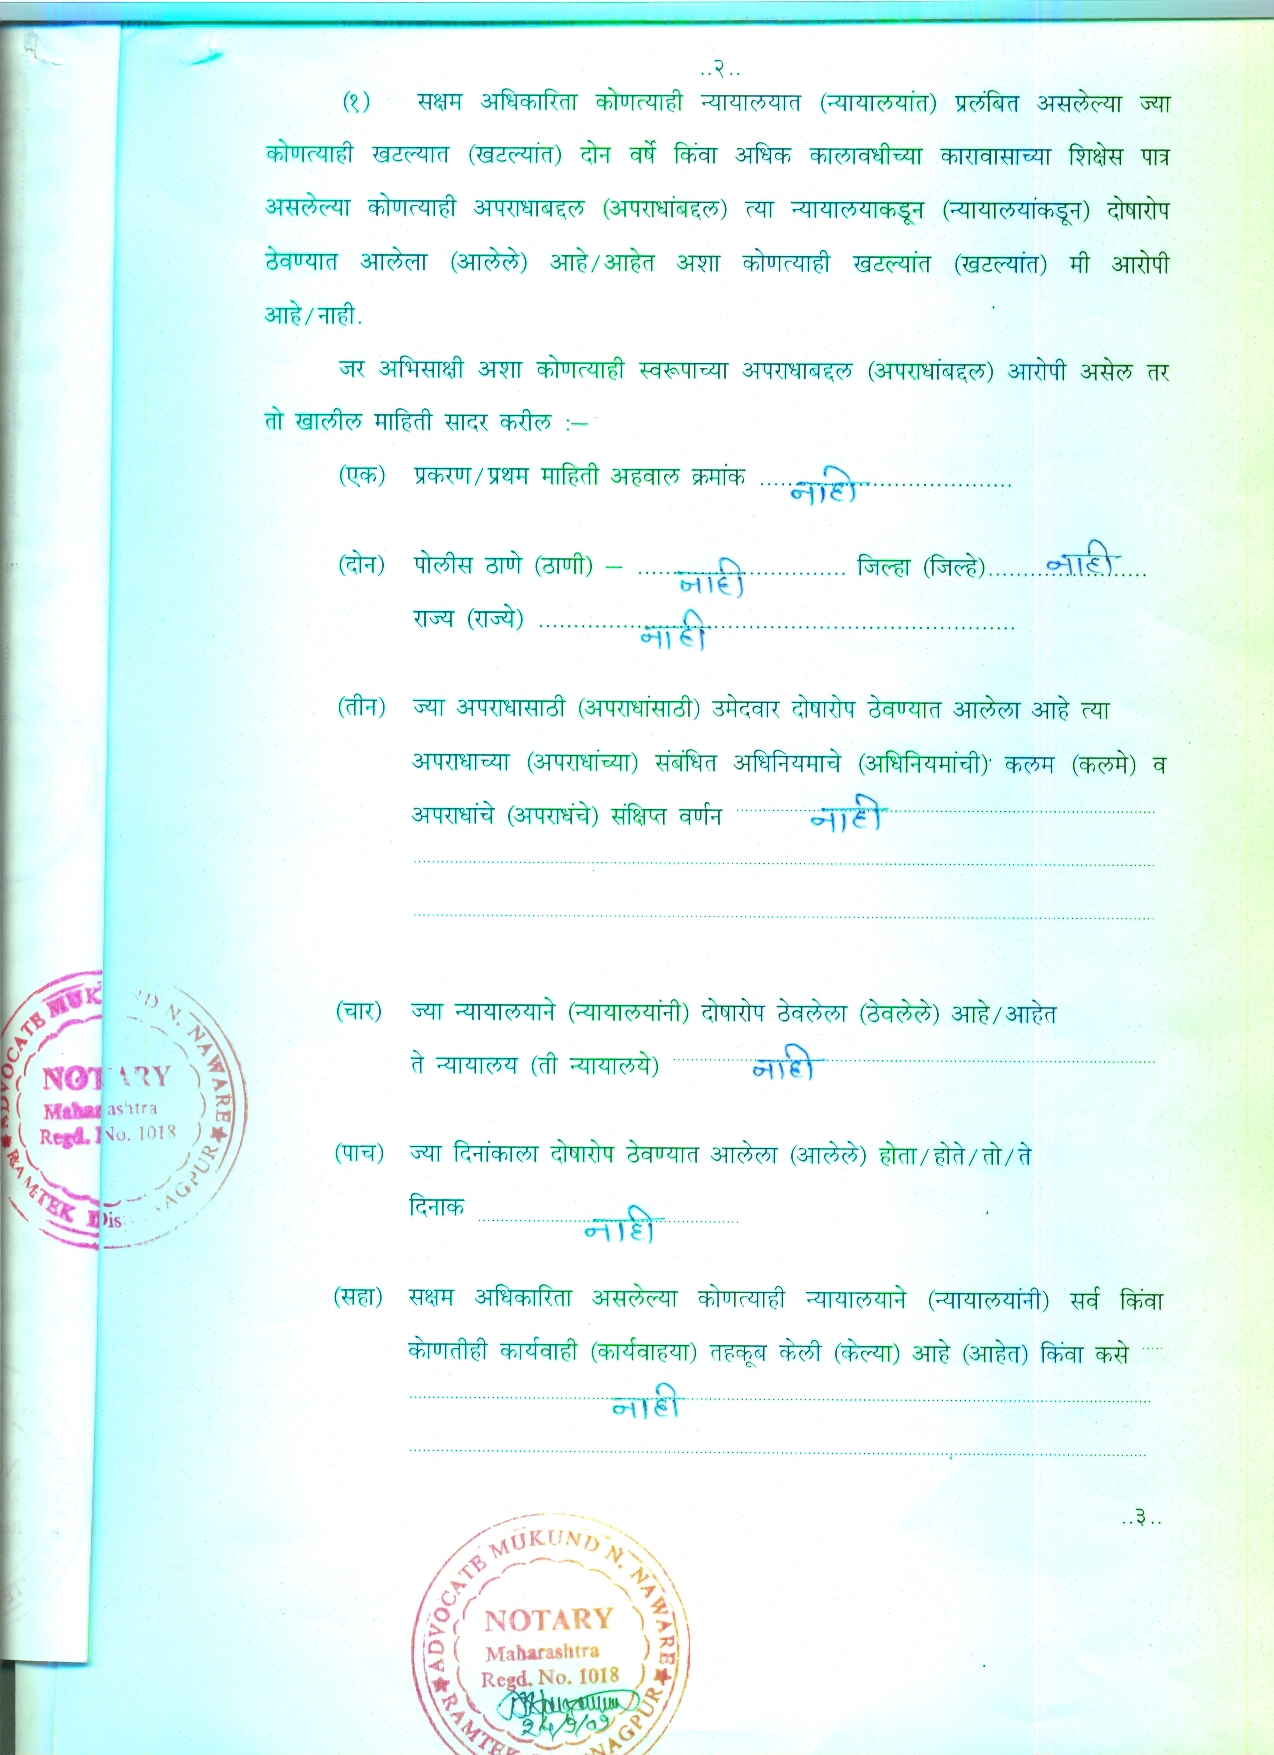 ..२..
(१) सक्षम अधिकारिता कोणत्याही न्यायालयात (न्यायालयांत) प्रलंबित असलेल्या ज्या
कोणत्याही खटल्यात (खटल्यांत) दोन वर्षे किंवा अधिक कालावधीच्या कारावासाच्या शिक्षेस पात्र
असलेल्या कोणत्याही अपराधाबद्दल (अपराधांबद्दल) त्या न्यायालयाकडून (न्यायालयांकडून) दोषारोप
ठेवण्यात आलेला (आलेले) आहे/आहेत अशा कोणत्याही खटल्यांत (खटल्यांत) मी आरोपी
आहे/नाही.
जर अभिसाक्षी अशा कोणत्याही स्वरूपाच्या अपराधाबद्दल (अपराधांबद्दल) आरोपी असेल तर
तो खालील माहिती सादर करील :—
(एक) प्रकरण/प्रथम माहिती अहवाल क्रमांक ..... नाही .....
(दोन) पोलीस ठाणे (ठाणी) – ..... नाही ..... जिल्हा (जिल्हे)..... नाही .....
राज्य (राज्ये) ..... नाही .....
(तीन) ज्या अपराधासाठी (अपराधांसाठी) उमेदवार दोषारोप ठेवण्यात आलेला आहे त्या
अपराधाच्या (अपराधांच्या) संबंधित अधिनियमाचे (अधिनियमांची) कलम (कलमे) व
अपराधांचे (अपराधंचे) संक्षिप्त वर्णन ..... नाही .....
(चार) ज्या न्यायालयाने (न्यायालयांनी) दोषारोप ठेवलेला (ठेवलेले) आहे/आहेत
ते न्यायालय (ती न्यायालये) ..... नाही .....
(पाच) ज्या दिनांकाला दोषारोप ठेवण्यात आलेला (आलेले) होता/होते/तो/ते
दिनाक ..... नाही .....
(सहा) सक्षम अधिकारिता असलेल्या कोणत्याही न्यायालयाने (न्यायालयांनी) सर्व किंवा
कोणतीही कार्यवाही (कार्यवाहया) तहकूब केली (केल्या) आहे (आहेत) किंवा कसे .....
..... नाही .....
..३..
ADVOCATE MUKUND N. NAWARE
NOTARY
Maharashtra
Regd. No. 1018
RAMTEK Dis NAGPUR
ADVOCATE MUKUND N. NAWARE
NOTARY
Maharashtra
Regd. No. 1018
RAMTEK NAGPUR